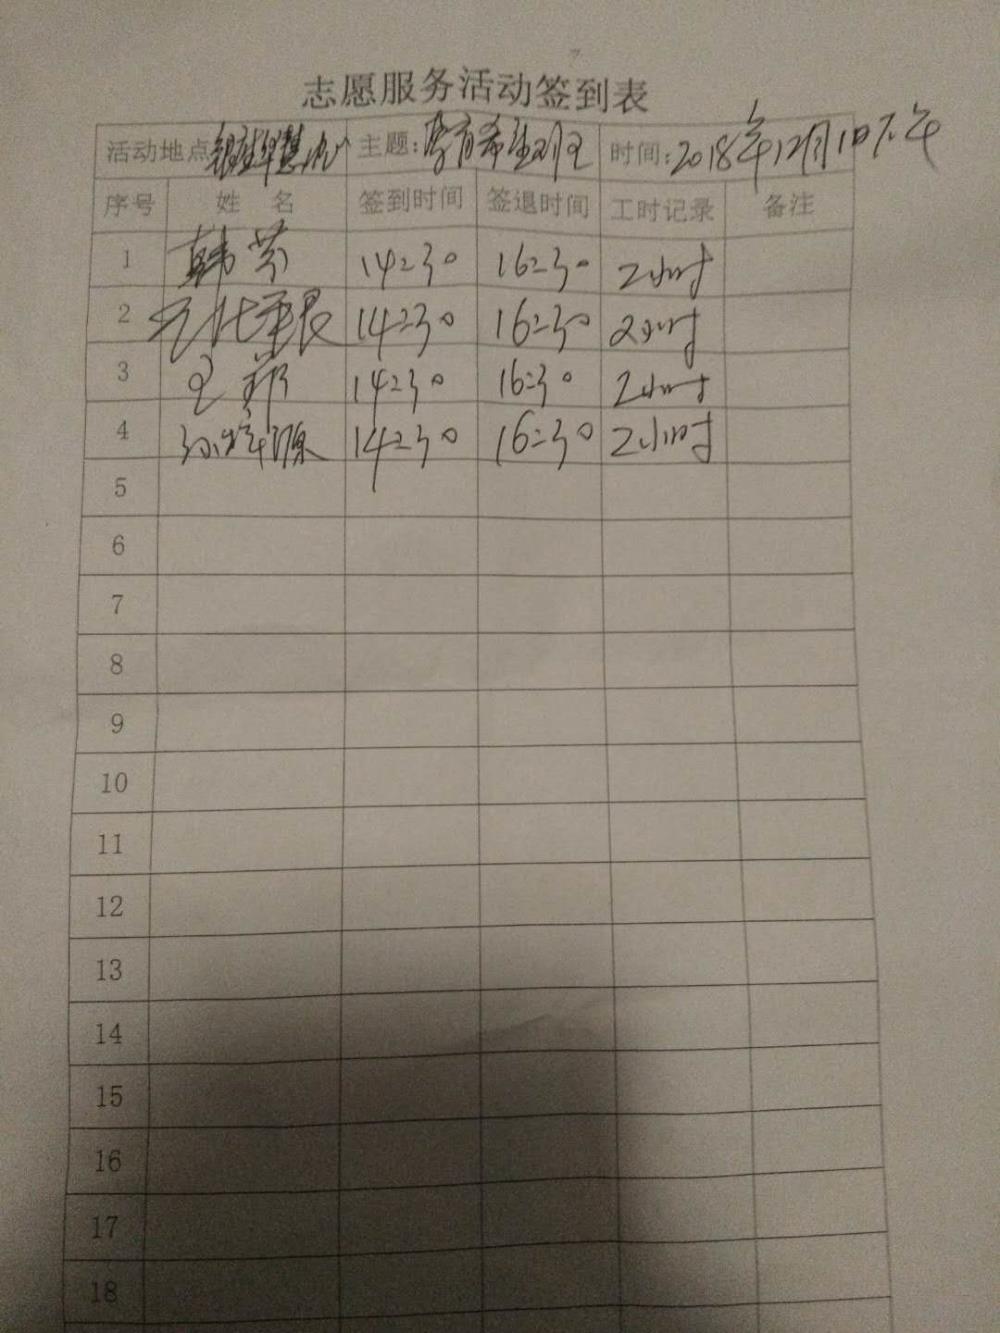 志愿服务活动签到表
活动地点 主题: 时间:2018年12月1日下午
序号 姓 名 签到时间 签退时间 工时记录 备注
1 韩芳 14:30 16:30 2小时
2 14:30 16:30 2小时
3 王 14:30 16:30 2小时
4 孙 源 14:30 16:30 2小时
5
6
7
8
9
10
11
12
13
14
15
16
17
18